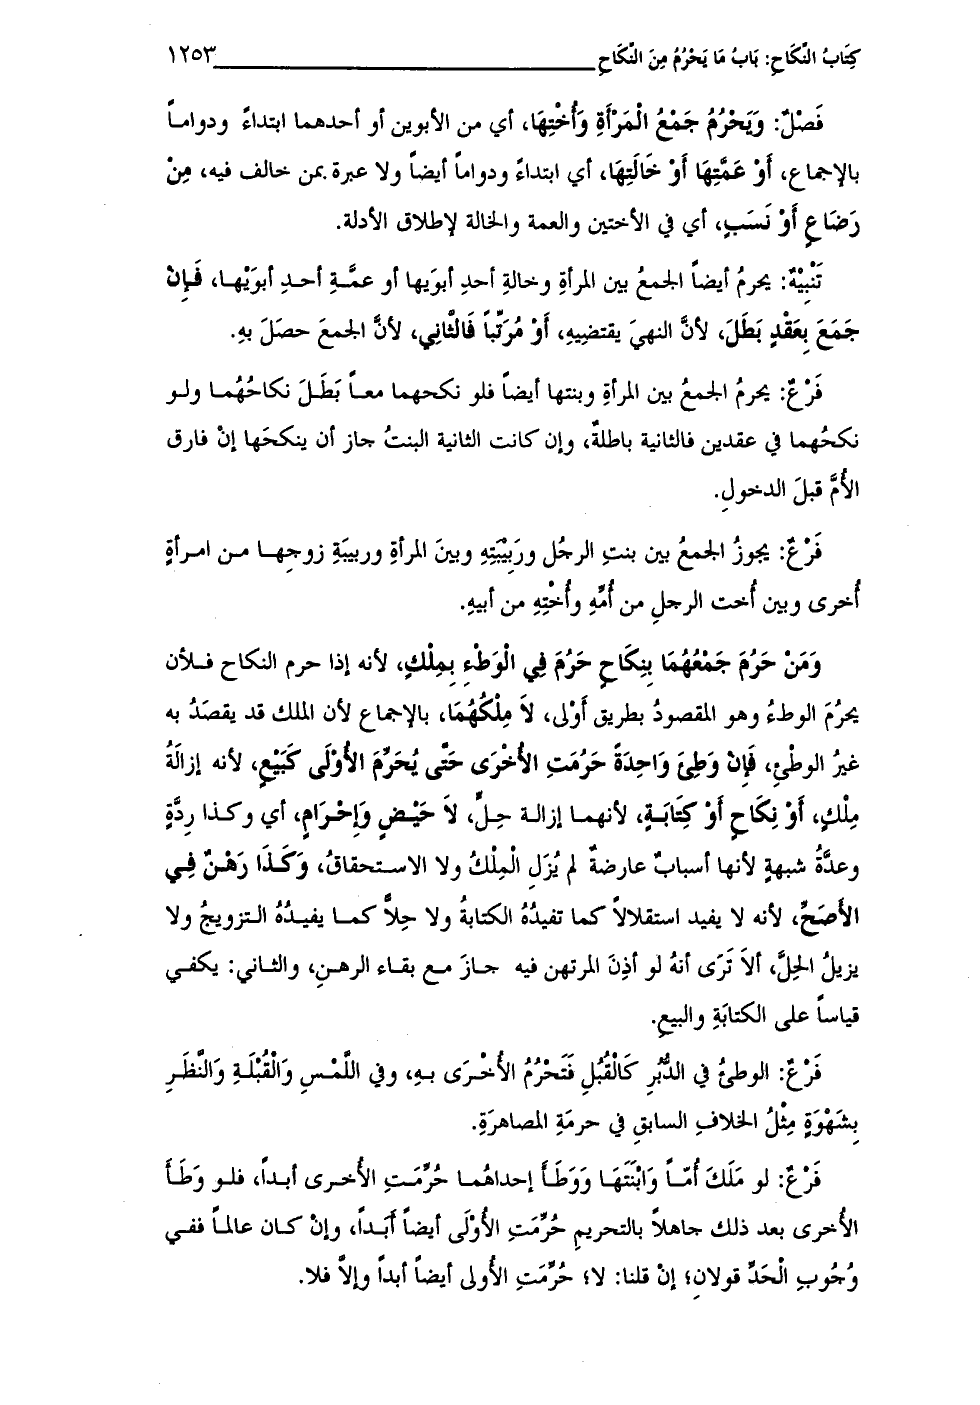 كِتَابُ النِّكَاحِ: بَابُ مَا يَحْرُمُ مِنَ النِّكَاحِ ١٢٥٣
فَصْلٌ: وَيَحْرُمُ جَمْعُ الْمَرْأَةِ وَأُخْتِهَا، أي من الأبوين أو أحدهما ابتداءً ودواماً
بالإجماع، أَوْ عَمَّتِهَا أَوْ خَالَتِهَا، أي ابتداءً ودواماً أيضاً ولا عبرة بمن خالف فيه، مِنْ
رَضَاعٍ أَوْ نَسَبٍ، أي في الأختين والعمة والخالة لإطلاق الأدلة.
تَنْبِيْهٌ: يحرمُ أيضاً الجمعُ بين المرأةِ وخالةِ أحدِ أبوَيها أو عمَّةِ أحدِ أبوَيْها، فَإِنْ
جَمَعَ بِعَقْدٍ بَطَلَ، لأنَّ النهيَ يقتضيهِ، أَوْ مُرَتِّباً فَالثَّانِي، لأنَّ الجمعَ حصَلَ بهِ.
فَرْعٌ: يحرمُ الجمعُ بين المرأةِ وبنتها أيضاً فلو نكحهما معاً بَطَلَ نكاحُهُما ولو
نكحُهما في عقدين فالثانية باطلةٌ، وإن كانت الثانية البنتُ جاز أن ينكحَها إنْ فارق
الأُمَّ قبلَ الدخولِ.
فَرْعٌ: يجوزُ الجمعُ بين بنتِ الرجُل ورَبِيْبَتِهِ وبينَ المرأةِ وربيبَةِ زوجِها من امرأةٍ
أُخرى وبين أُخت الرجلِ من أُمِّهِ وأُخْتِهِ من أبيهِ.
وَمَنْ حَرُمَ جَمْعُهُمَا بِنِكَاحٍ حَرُمَ فِي الْوَطْءِ بِمِلْكٍ، لأنه إذا حرم النكاح فلأن
يحرُمَ الوطءُ وهو المقصودُ بطريق أَوْلى، لاَ مِلْكُهُمَا، بالإجماع لأن الملك قد يقصَدُ به
غيرُ الوطْئِ، فَإِنْ وَطِئَ وَاحِدَةً حَرُمَتِ الأُخْرَى حَتَّى يُحَرِّمَ الأُوْلَى كَبَيْعٍ، لأنه إزالَةُ
مِلْكٍ، أَوْ نِكَاحٍ أَوْ كِتَابَةٍ، لأنهما إزالة حِلٍّ، لاَ حَيْضٍ وَإِحْرَامٍ، أي وكذا رِدَّةٍ
وعدَّةُ شبهةٍ لأنها أسبابٌ عارضةٌ لم يُزَلِ الْمِلْكُ ولا الاستحقاقُ، وَكَذَا رَهْنٌ فِي
الأَصَحِّ، لأنه لا يفيد استقلالاً كما تفيدُهُ الكتابةُ ولا حِلاًّ كما يفيدُهُ التزويجُ ولا
يزيلُ الحِلَّ، أَلاَ تَرَى أنهُ لو أذِنَ المرتهن فيه جازَ مع بقاء الرهنِ، والثاني: يكفي
قياساً على الكتابَةِ والبيعِ.
فَرْعٌ: الوطئُ في الدُّبُرِ كَالْقُبُلِ فَتَحْرُمُ الأُخْرَى بهِ، وفي اللَّمْسِ وَالْقُبْلَةِ وَالنَّظَرِ
بِشَهْوَةٍ مِثْلُ الخلافِ السابقِ في حرمَةِ المصاهرَةِ.
فَرْعٌ: لو مَلَكَ أُمّاً وَابْنَتَهَا وَوَطَأَ إحداهُما حُرِّمَتِ الأُخرى أبداً، فلو وَطَأَ
الأُخرى بعد ذلك جاهلاً بالتحريمِ حُرِّمَتِ الأُوْلَى أيضاً أَبَداً، وإنْ كان عالماً ففي
وُجُوبِ الْحَدِّ قولانِ؛ إنْ قلنا: لا؛ حُرِّمَتِ الأُولى أيضاً أبداً وإلاَّ فلا.